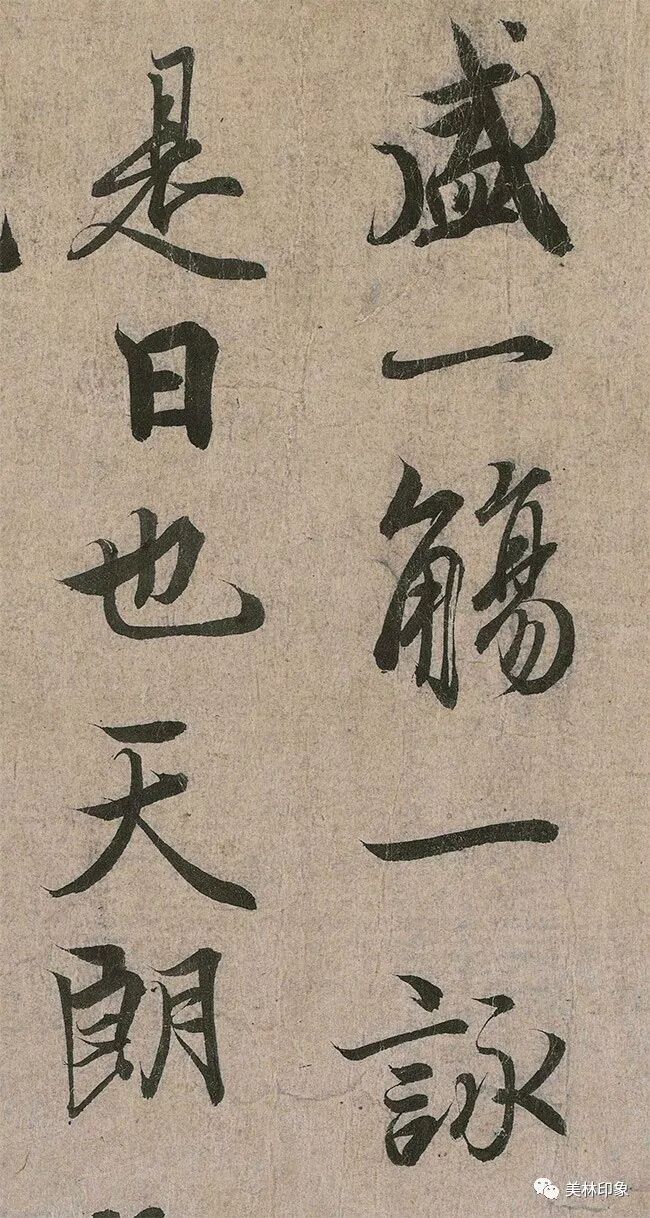 盛一觴一詠
是日也天朗
美林印象